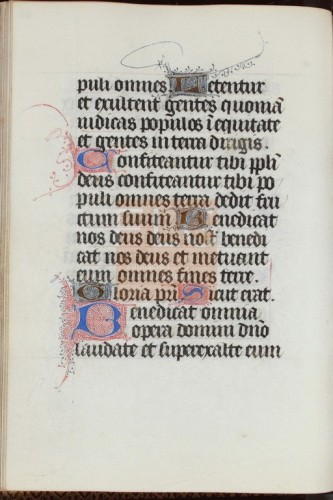 puli omnes Letentur
et exultent gentes quoniā
iudicas populos ī equitate
et gentes in terra dirigis.
Confiteantur tibi pp̄li
deus confiteantur tibi po
puli omnes terra dedit fru
ctum suum Benedicat
nos deus deus nost̄ benedi
cat nos deus et metuant
eum omnes fines terre.
Gloria pri Sicut erat.
Benedicat omnia
opera domini dn̄o
laudate et superexalte eum